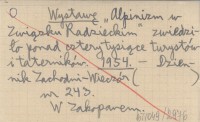 O Wystawę „Alpinizm w
Związku Radzieckim" zwiedzi-
ło ponad cztery tysiące turystów
i taterników. 1954. – Dzien-
nik Zachodni-Wieczór (
nr 243.
W Zakopanem.